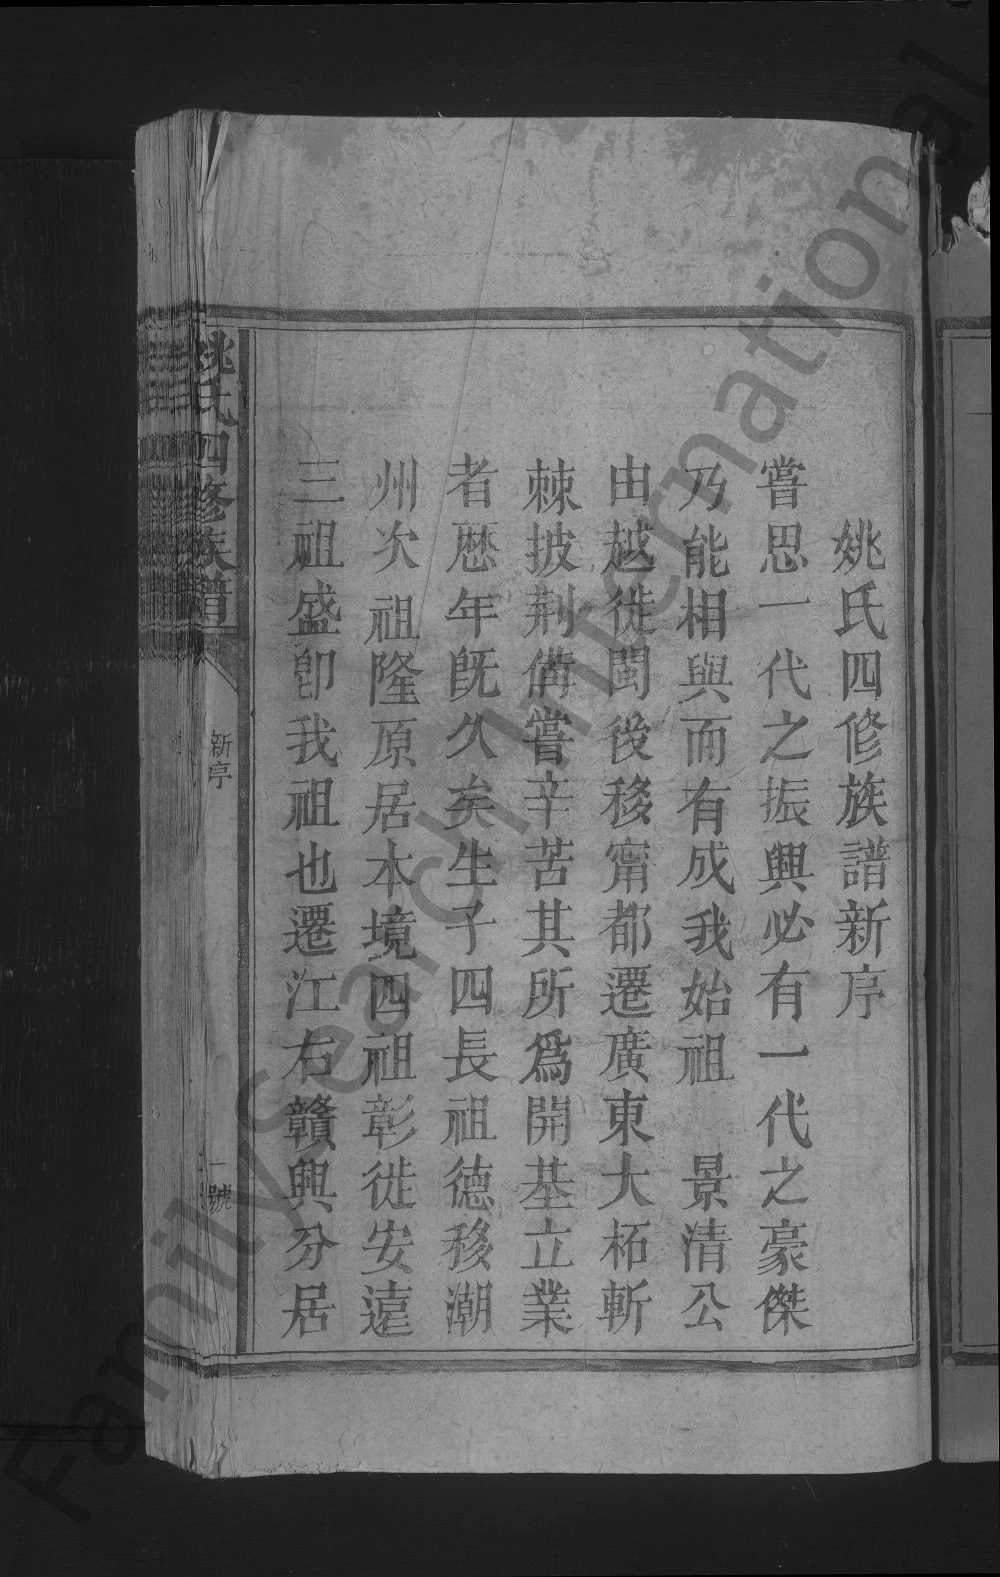 姚氏四修族譜新序
嘗思一代之振興必有一代之豪傑
乃能相與而有成我始祖　景清公
由越徙閩後移甯都遷廣東大柘斬
棘披荆備嘗辛苦其所爲開基立業
者歷年旣久矣生子四長祖德移潮
州次祖隆原居本境四祖彰徙安遠
三祖盛卽我祖也遷江右贛興分居
姚氏四修族譜
新序
一號
FamilySearch International